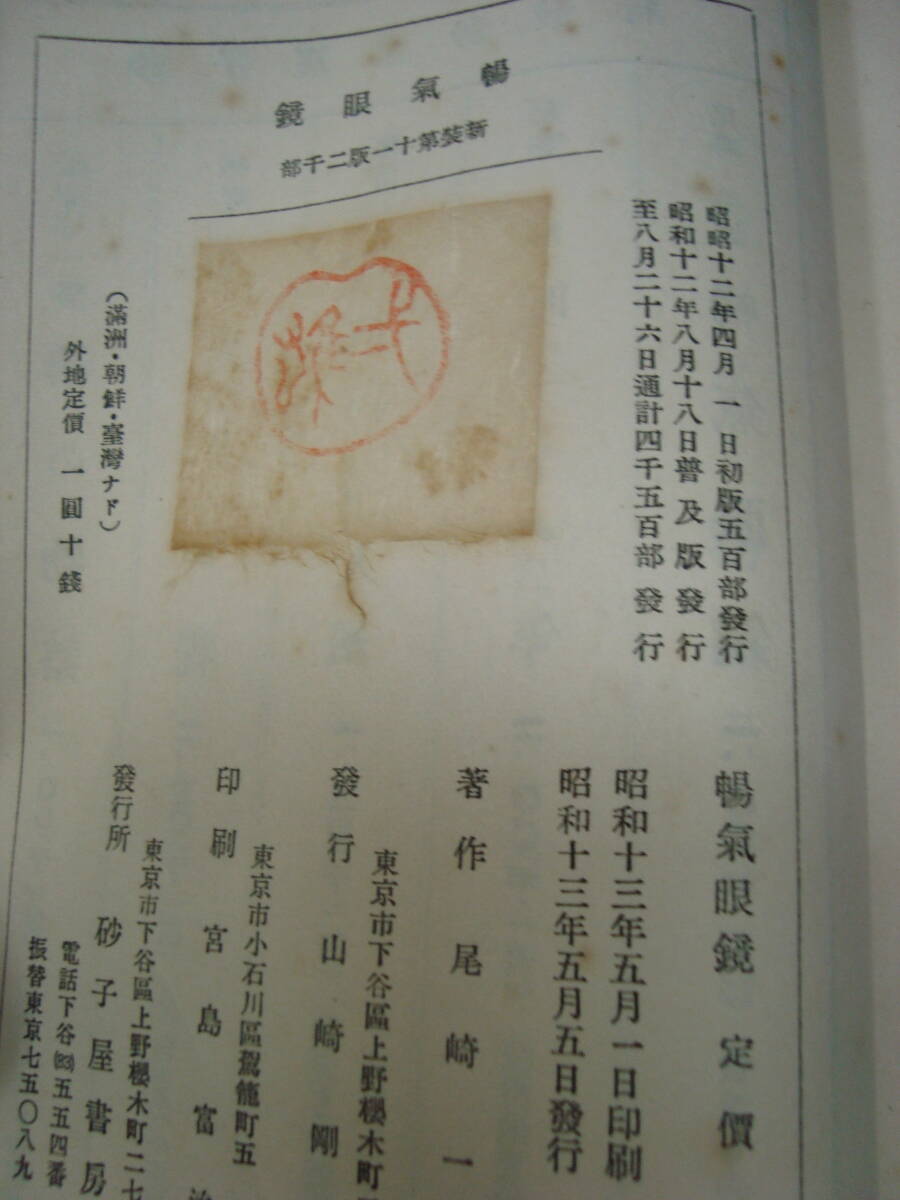 暢氣眼鏡
新裝第十一版二千部
昭昭十二年四月一日初版五百部發行
昭和十二年八月十八日普及版發行
至八月二十六日通計四千五百部發行
(滿洲・朝鮮・臺灣ナド)
外地定價 一圓十錢
暢氣眼鏡 定價
昭和十三年五月一日印刷
昭和十三年五月五日發行
著作 尾崎一
東京市下谷區上野櫻木町
發行 山崎剛
東京市小石川區駕籠町五
印刷 宮島富治
東京市下谷區上野櫻木町二七
發行所 砂子屋書房
電話下谷(83)五五四番
振替東京七五〇八九